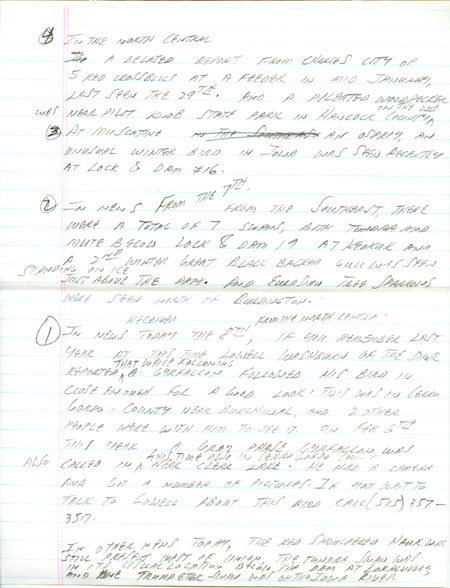 ④ IN THE NORTH CENTRAL
IN A BELATED REPORT FROM CHARLES CITY OF
5 RED CROSSBILLS AT A FEEDER IN MID JANUARY,
LAST SEEN THE 29TH. AND A PILEATED WOODPECKER
ON THE 2ND
WAS NEAR PILOT KNOB STATE PARK IN HANCOCK COUNTY,
③ AT MUSCATINE IN THE SOUTHEAST AN OSPREY, AN
UNUSUAL WINTER BIRD IN IOWA WAS SEEN RECENTLY
AT LOCK & DAM #16.
② IN NEWS FROM THE 7TH, FROM THE SOUTHEAST, THERE
WERE A TOTAL OF 7 SWANS, BOTH TUNDRA AND
MUTE BELOW LOCK & DAM 19 AT KEOKUK AND
A 2ND WINTER GREAT BLACK BACKED GULL WAS SEEN
STANDING ON ICE
JUST ABOVE THE DAM. AND EURASIAN TREE SPARROWS
WERE SEEN NORTH OF BURLINGTON.
RECEIVED FROM THE NORTH CENTRAL
① IN NEWS TODAY THE 8TH, IF YOU REMEMBER LAST
YEAR AT THIS TIME LOWELL WASHBURN OF THE DNR
THAT WHILE FOLLOWING
REPORTED A GYRFALCON FOLLOWED HIS BIRD IN
CLOSE ENOUGH FOR A GOOD LOOK! THIS WAS IN CERRO
GORDO COUNTY NEAR BURCHINAL, AND 2 OTHER
PEOPLE WERE WITH HIM TO SEE IT. ON FEB 6TH
THIS YEAR A GRAY PHASE GYRFALCON WAS
THIS TIME ALSO IN CERRO GORDO COUNTY
ALSO CALLED IN NEAR CLEAR LAKE. HE HAD A CAMERA
AND GOT A NUMBER OF PICTURES. IF YOU WANT TO
TALK TO LOWELL ABOUT THIS BIRD CALL (515) 357-
3517.
IN OTHER NEWS TODAY, THE RED SHOULDERED HAWK WAS
STILL PRESENT WEST OF UNION, THE TUNDRA SWAN WAS
IN ITS USUAL LOCATION BELOW THE DAM AT
AND ONE TRUMPETER SWAN WAS ON THE IOWA RIVER